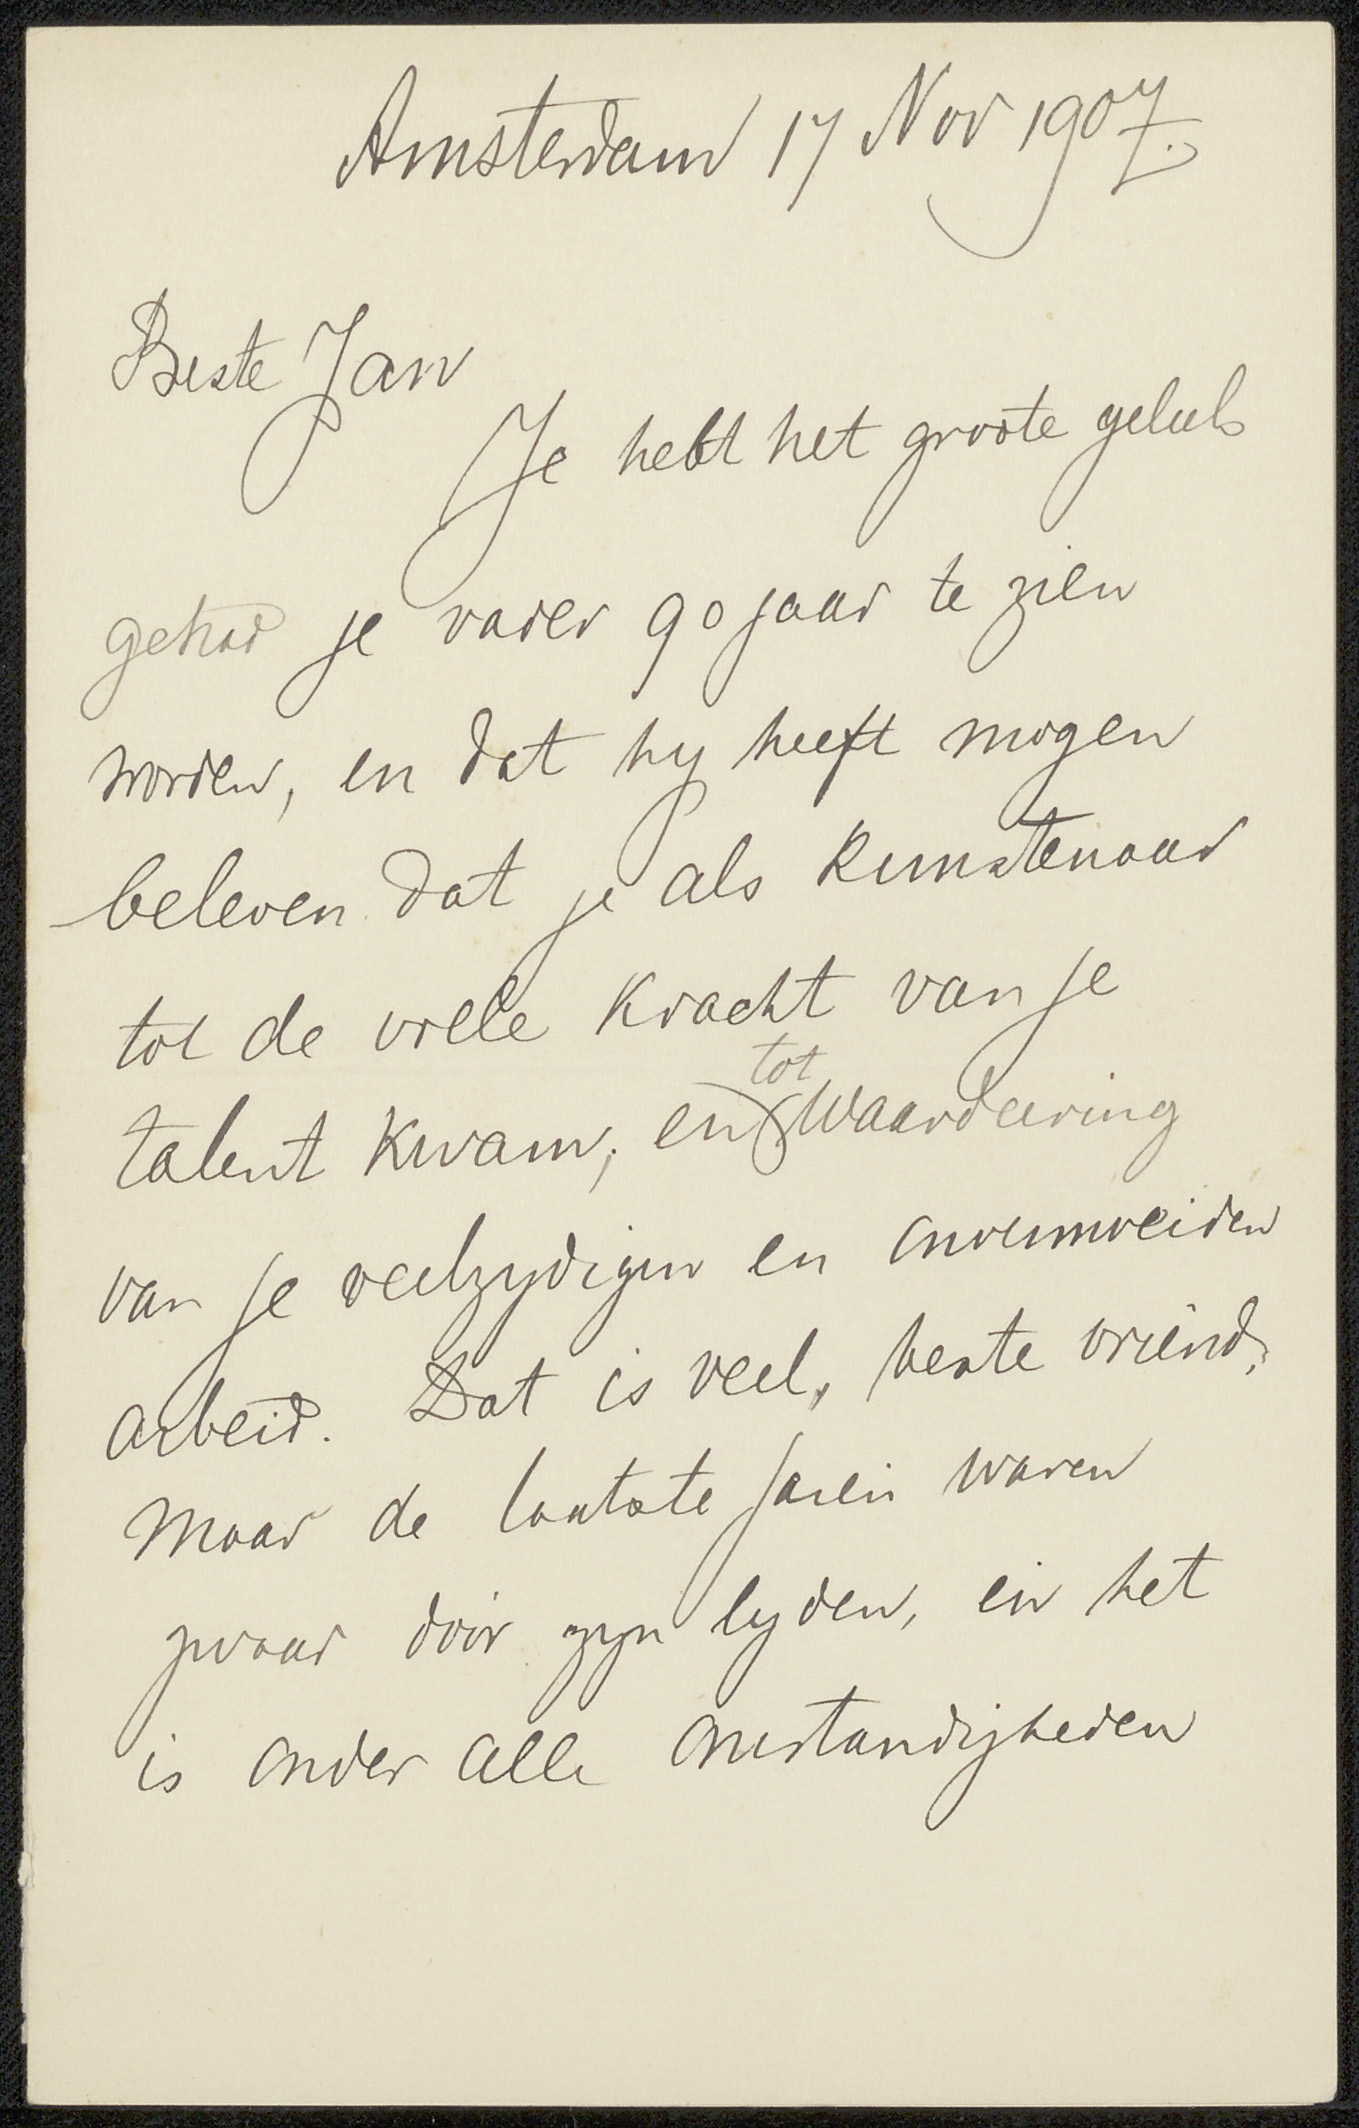 Amsterdam 17 Nov 1907.
Beste Jan
Je hebt het groote geluk
gehad je vader 90 jaar te zien
worden, en dat hy heeft mogen
beleven dat je als kunstenaar
tot de volle kracht van je
talent kwam, en tot waardeering
van je veelzydigen en onvermoeiden
arbeid. Dat is veel, beste vriend,
maar de laatste jaren waren
zwaar door zyn lyden, en het
is onder alle omstandigheden